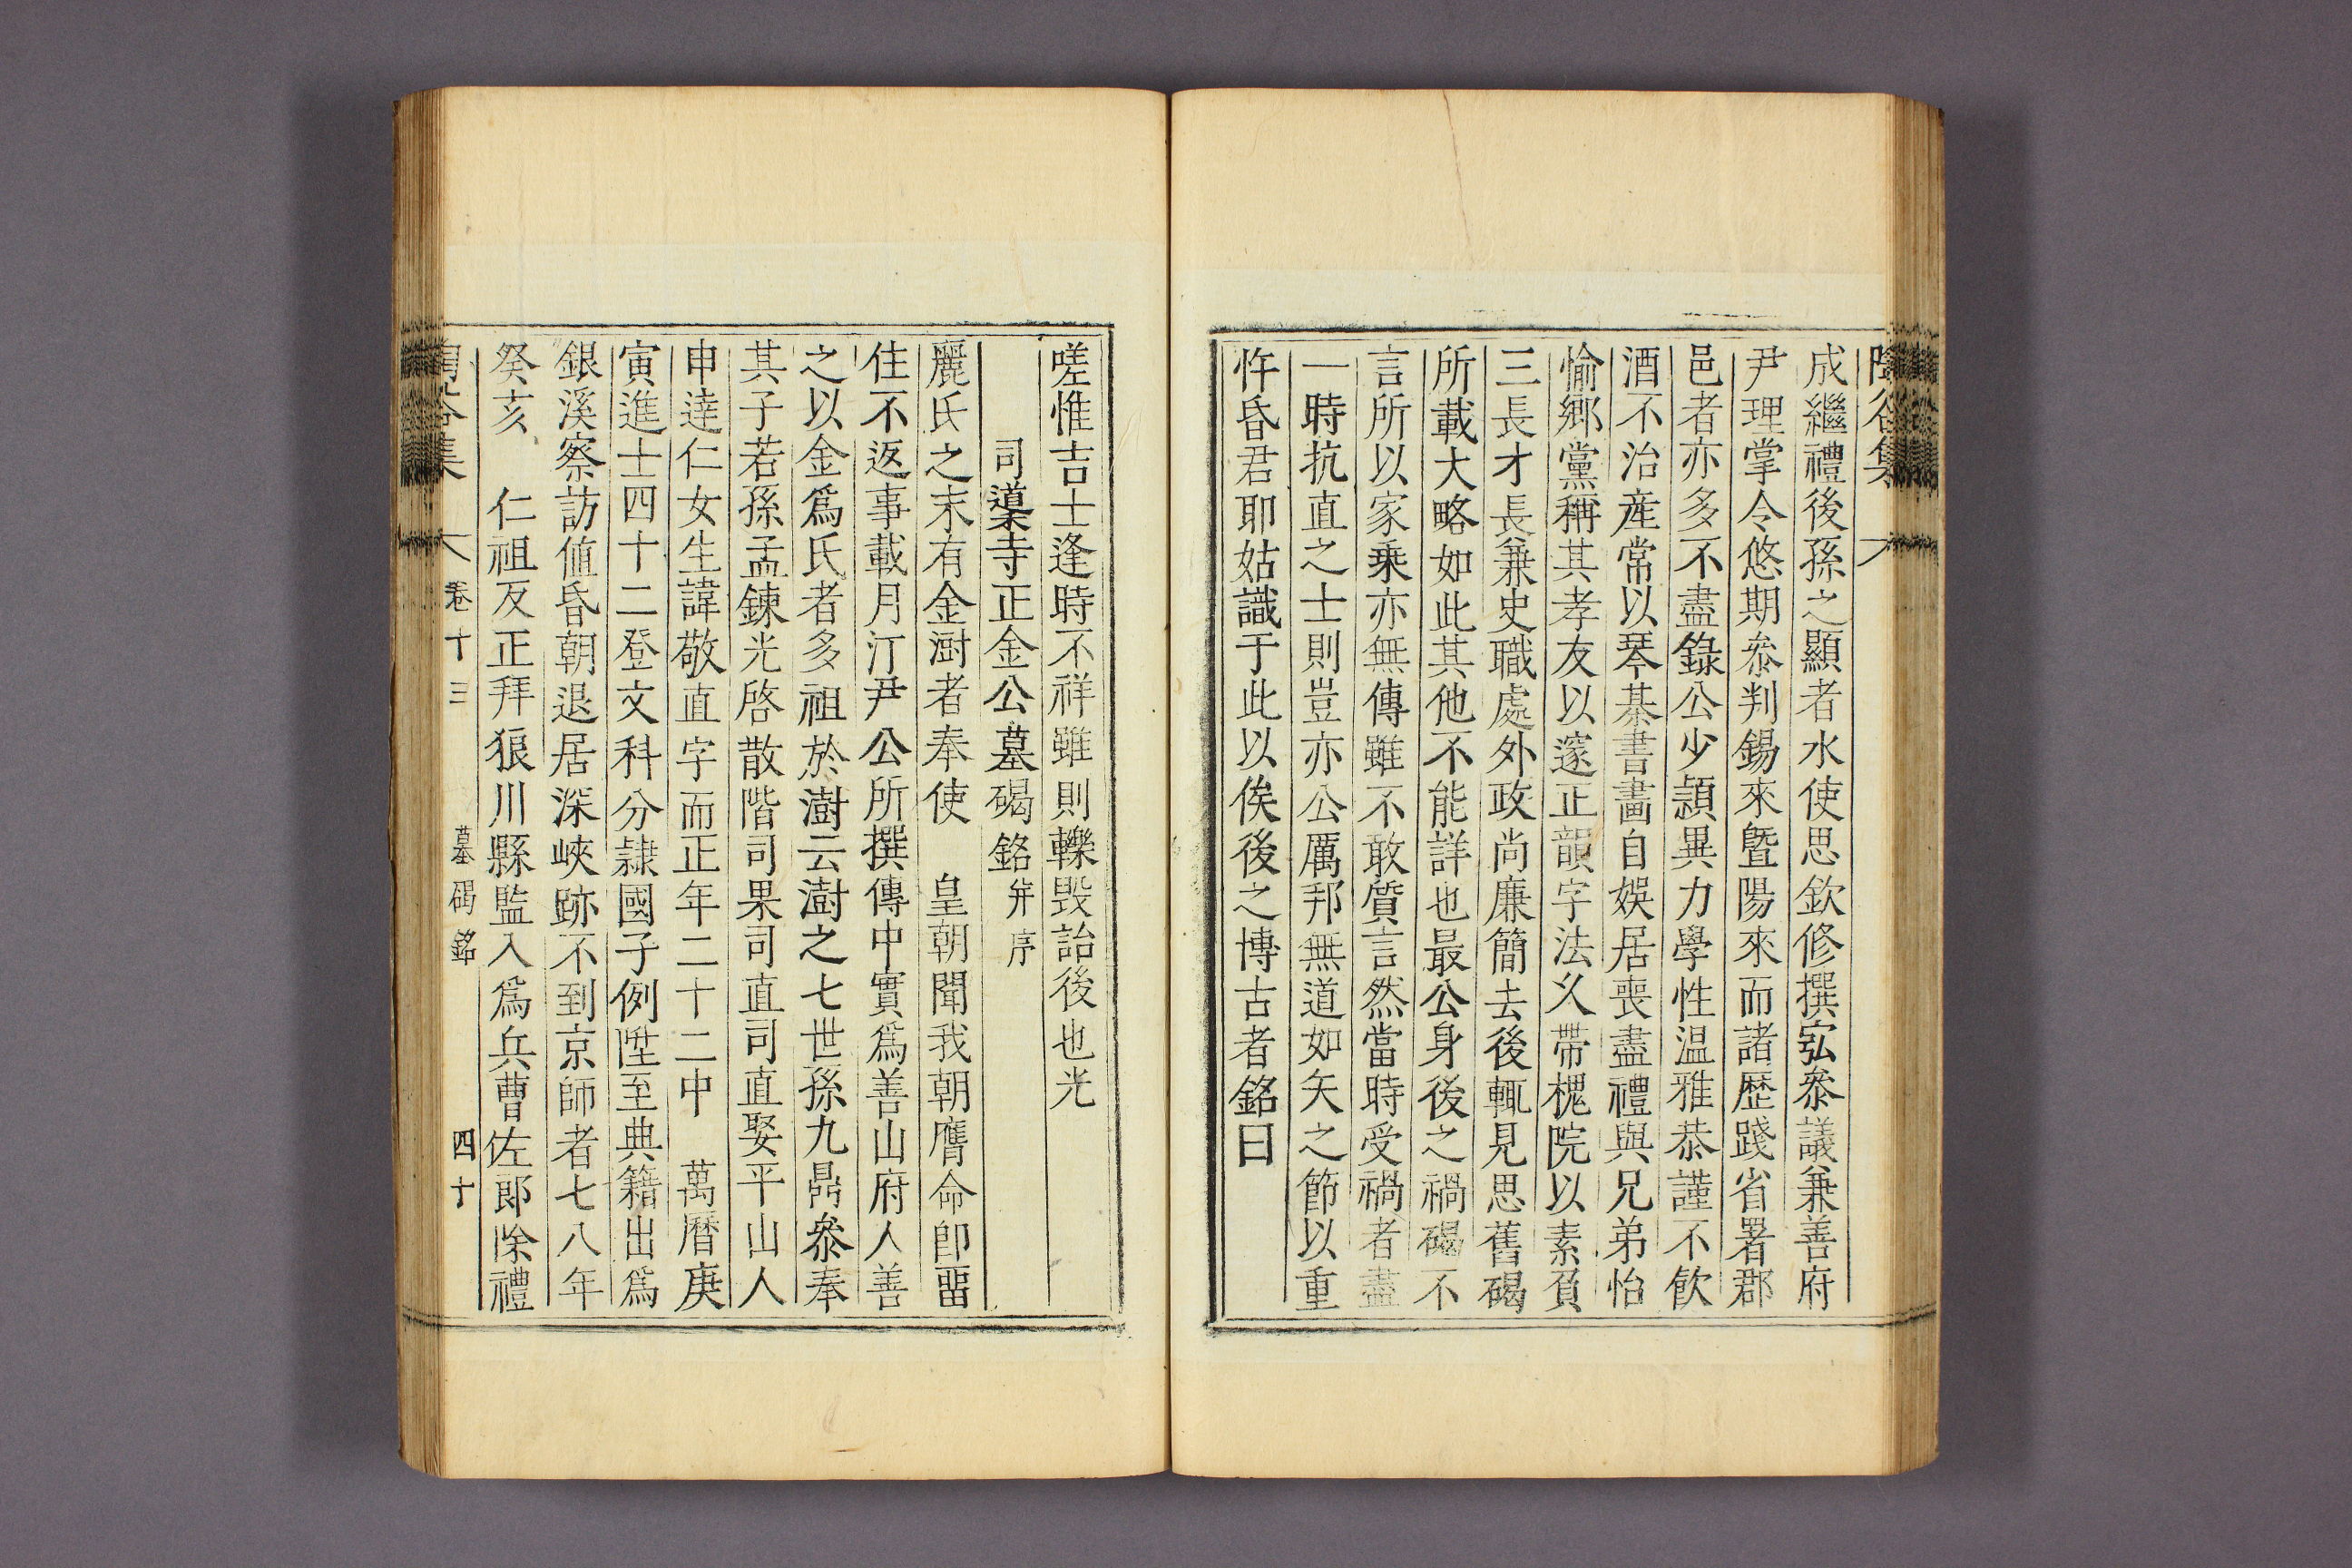 陶谷集
成繼禮後孫之顯者水使思欽修撰宖叅議兼善府
尹理掌令悠期叅判錫來曁陽來而諸歷踐省署郡
邑者亦多不盡錄公少穎異力學性温雅恭謹不飮
酒不治産常以琴棊書畵自娛居喪盡禮與兄弟怡
愉鄕黨稱其孝友以邃正韻字法久帶槐院以素負
三長才長兼史職處外政尚廉簡去後輒見思舊碣
所載大略如此其他不能詳也最公身後之禍碣不
言所以家乘亦無傳雖不敢質言然當時受禍者盡
一時抗直之士則豈亦公厲邦無道如矢之節以重
忤昏君耶姑識于此以俟後之博古者銘曰
嗟惟吉士逢時不祥雖則轢毁詒後也光
司䆃寺正金公墓碣銘 幷序
麗氏之末有金澍者奉使 皇朝聞我朝膺命卽畱
住不返事載月汀尹公所撰傳中實爲善山府人善
之以金爲氏者多祖於澍云澍之七世孫九鼎叅奉
其子若孫孟鍊光啓散階司果司直司直娶平山人
申達仁女生諱敬直字而正年二十二中 萬曆庚
寅進士四十二登文科分隷國子例陞至典籍出爲
銀溪察訪値昏朝退居深峽跡不到京師者七八年
癸亥 仁祖反正拜狼川縣監入爲兵曹佐郞除禮
陶谷集 卷十三 墓碣銘 四十